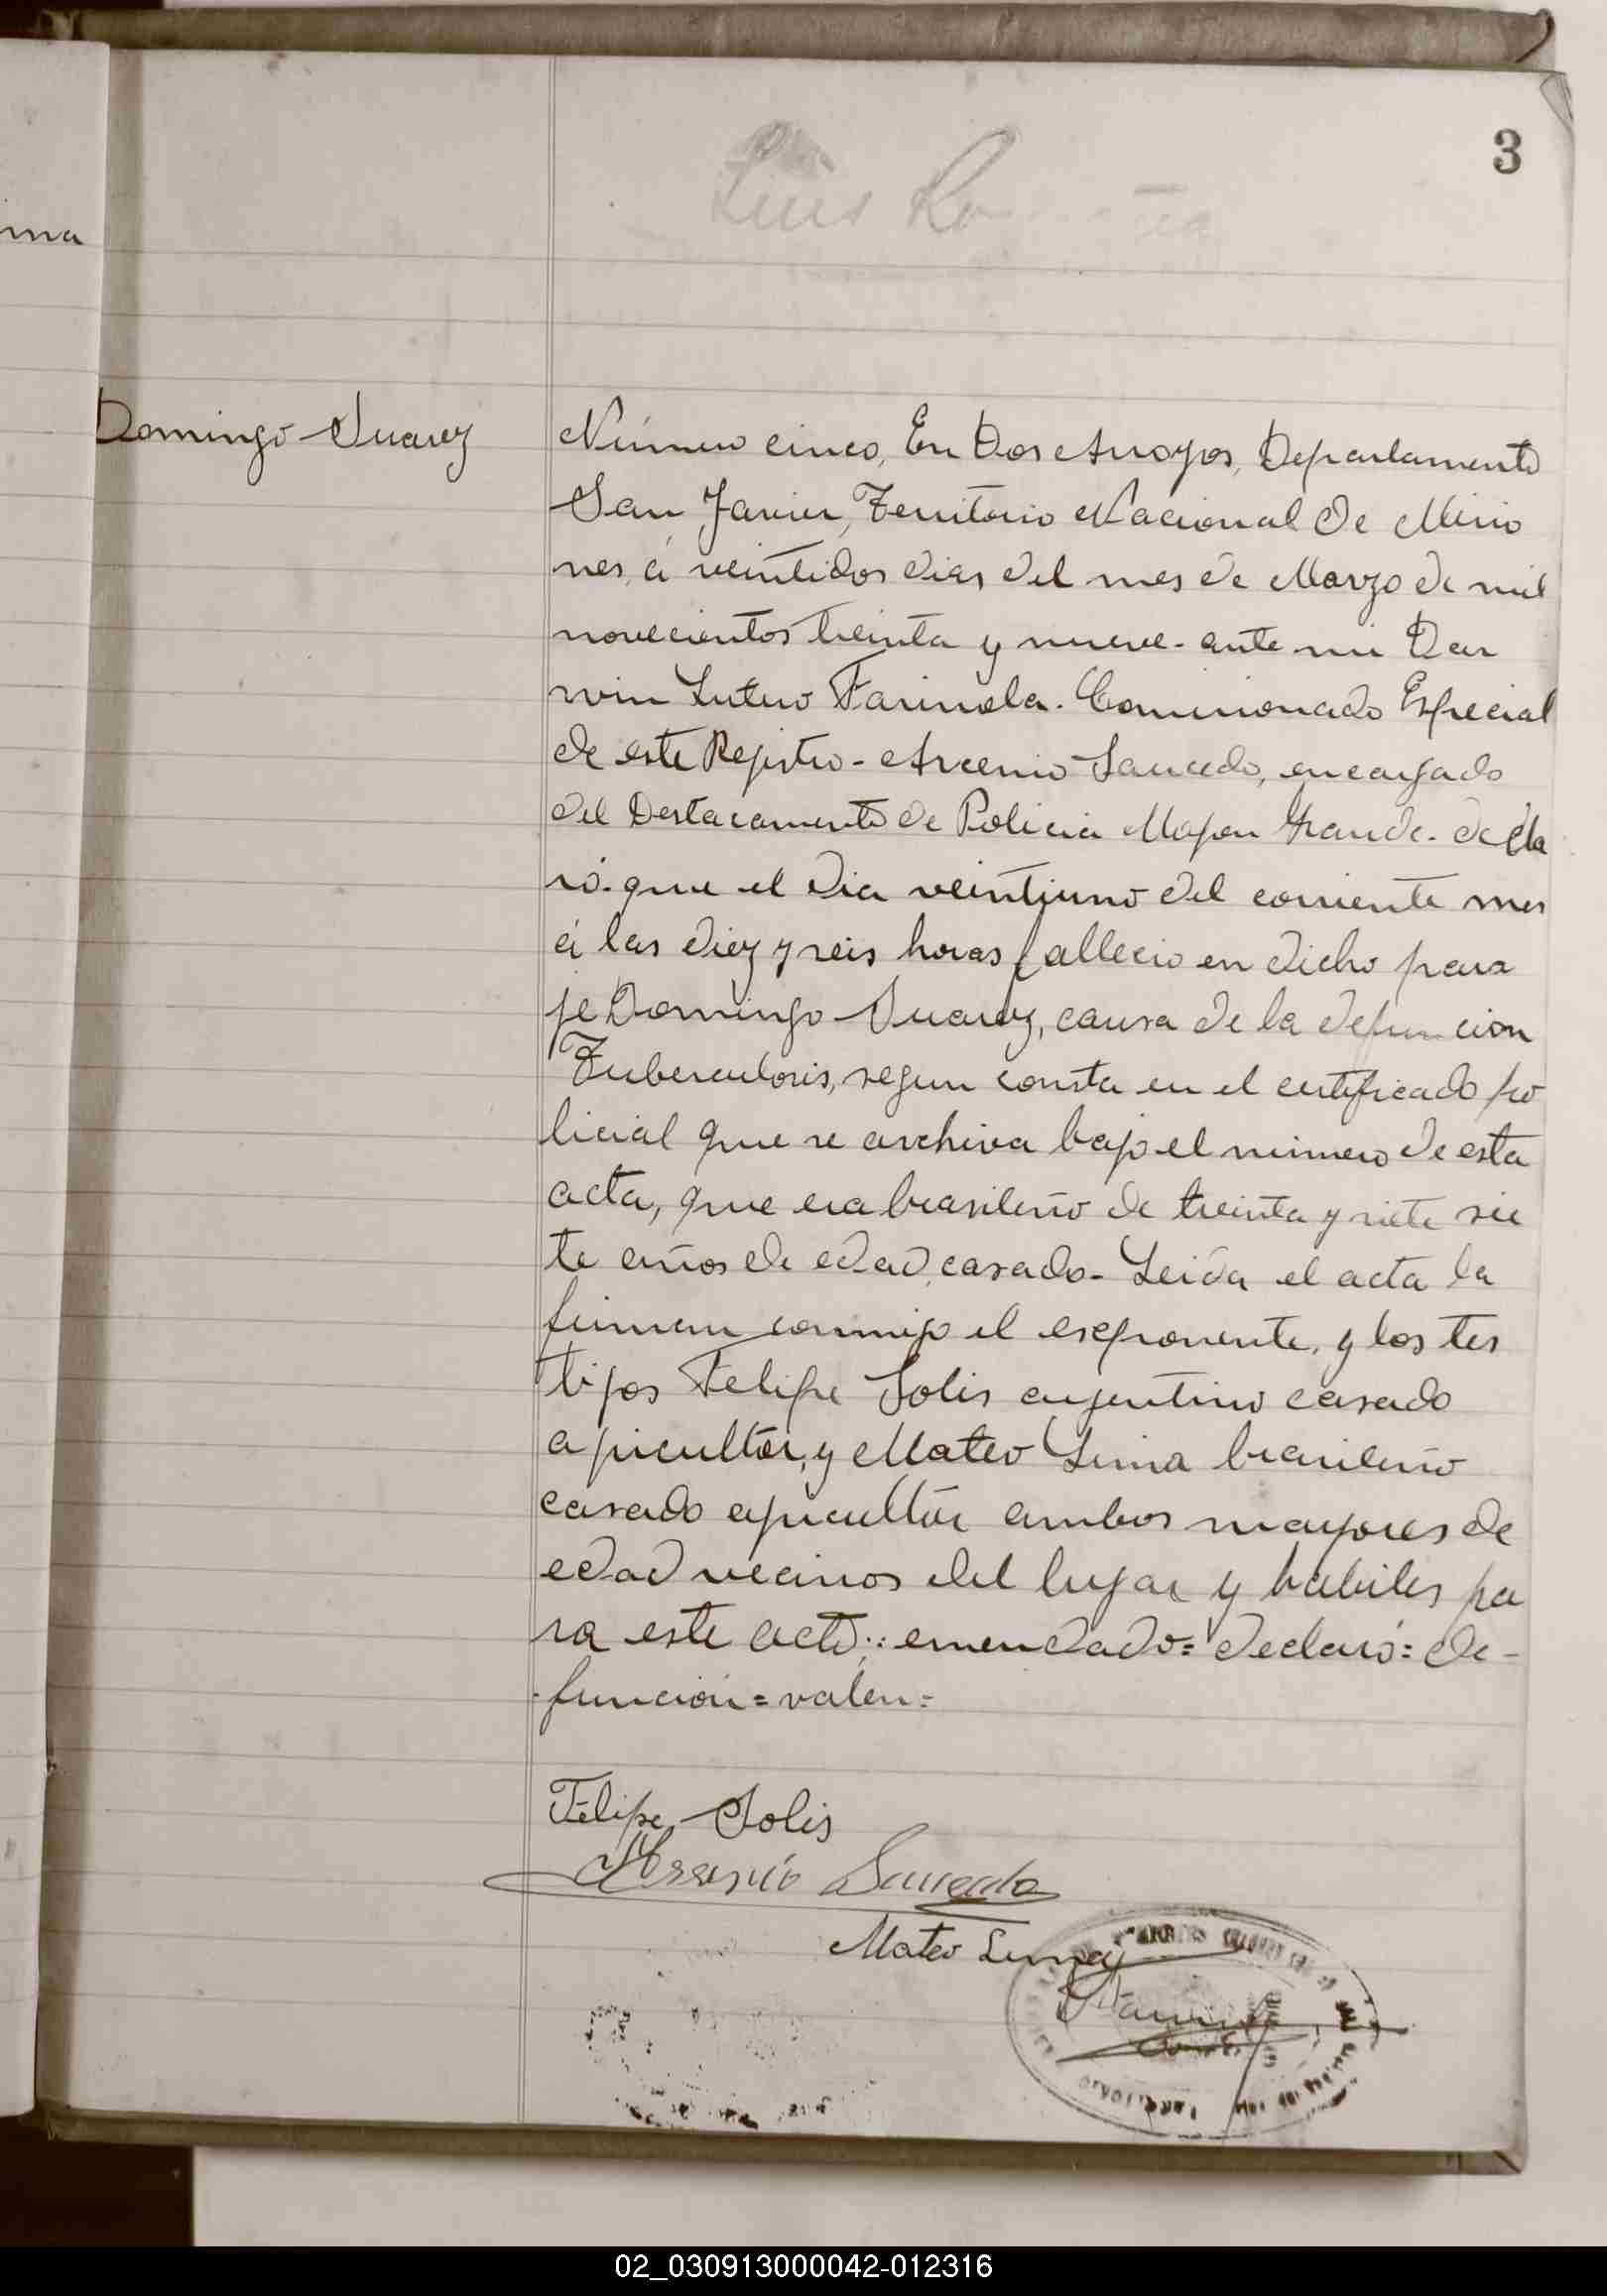 3
Luis
ma
Domingo Suarez
Número cinco, En Dos Arroyos, Departamento
San Javier, Territorio Nacional de Misio
nes, á veintidos dias del mes de Marzo de mil
novecientos treinta y nueve - ante mi Dar
win Lutero Farinola. Comisionado Especial
de este Registro - Arcenio Saucedo, encargado
del Destacamento de Policia Mojon Grande - decla
ró - que el dia veintiuno del corriente mes
á las diez y seis horas fallecio en dicho para
je Domingo Suarez, causa de la defuncion
Tuberculosis, segun consta en el certificado po
licial que se archiva bajo el número de esta
acta, que era brasileño de treinta y siete sie
te años de edad, casado - Leida el acta la
firman conmigo el esxponente, y los tes
tigos Felipe Solis argentino casado
agricultor, y Mateo Lima brasileño
casado agricultor ambos mayores de
edad vecinos del lugar y habiles pa
ra este acto :: emendado = declaró = de -
función = valen =
Felipe Solis
Arsenio Saucedo
Mateo Lima
02_030913000042-012316